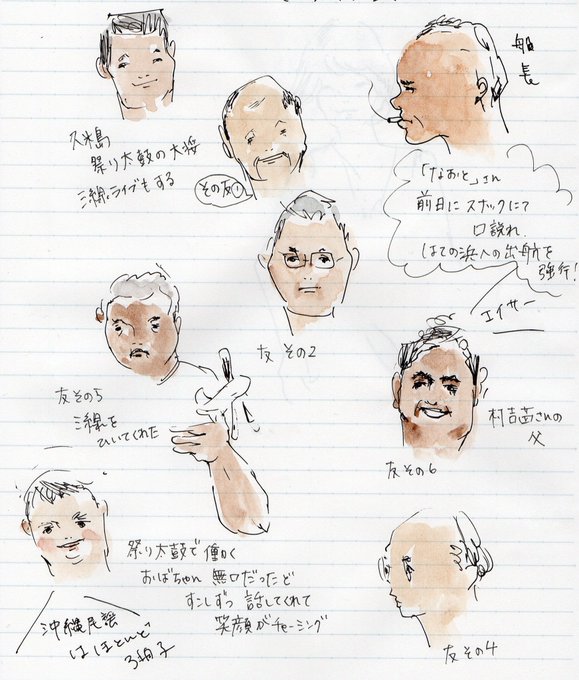 久米島
祭り太鼓の大将
三線ライブもする
その友1
船長
「なおと」さん
前日にスナックにて
口説れ
はての浜への出航を
強行!
エイサー
友 その2
友その5
三線を
ひいてくれた
友その6
村吉茜さんの
父
祭り太鼓で働く
おばちゃん 無口だったど
すこしずつ 話してくれて
笑顔がチャーミング
沖縄民謡
はほとんど
3拍子
友その4